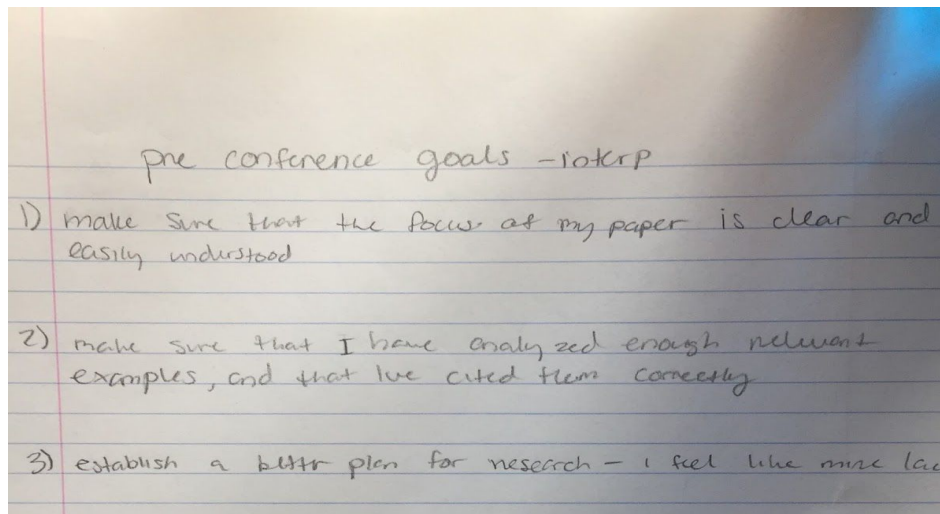 pre conference goals - interp
1) make sure that the focus of my paper is clear and
easily understood
2) make sure that I have analyzed enough relevant
examples, and that Ive cited them correctly
3) establish a better plan for research - i feel like mine lac